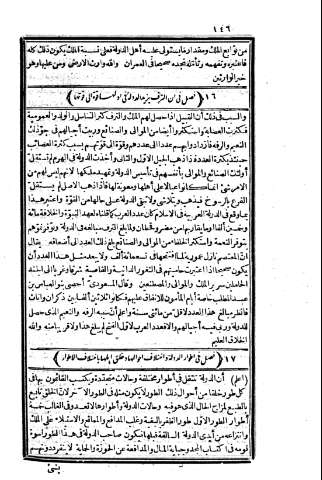 ١٤٦
من توابع الملك ومقدار ما يستولى عليه أهل الدولة فعلى نسبة الملك يكون ذلك كله
فاعتبره وتفهمه وتأمله تجده صحيحا فى العمران والله وارث الارض ومن عليها وهو
خير الوارثين
١٦ فصل فى أن الترف يزيد الدولة فى أولها قوة الى قوتها
والسبب فى ذلك أن القبيل اذا حصل لهم الملك والترف كثر التناسل والولد والعمومية
فكثرت العصابة واستكثروا أيضا من الموالى والصنائع وربيت أجيالهم فى جو ذلك
النعيم والرفه فازدادوا بهم عددا الى عددهم وقوة الى قوتهم بسبب كثرة العصائب
حينئذ بكثرة العدد فاذا ذهب الجيل الاول والثانى وأخذت الدولة فى الهرم لم تستقل
أولئك الصنائع والموالى بأنفسهم فى تأسيس الدولة وتمهيد ملكها لانهم ليس لهم من
الامر شئ انما كانوا عيالا على أهلها ومعونة لها فاذا ذهب الاصل لم يستقل
الفرع بالرسوخ فيذهب ويتلاشى ولا تبقى الدولة على حالها من القوة واعتبر هذا
بما وقع فى الدولة العربية فى الاسلام كان عدد العرب كما قلناه لعهد النبوة والخلافة مائة
وخمسين ألفا وما يقاربها من مضر وقحطان ولما بلغ الترف مبالغه فى الدولة وتوفر نموهم
بتوفر النعمة واستكثر الخلفاء من الموالى والصنائع بلغ ذلك العدد الى أضعافه يقال
ان المعتصم نازل عمورية لما افتتحها فى تسعمائة ألف ولا يبعد مثل هذا العدد أن
يكون صحيحا اذا اعتبرت حاميتهم فى الثغور الدانية والقاصية شرقا وغربا الى الجند
الحاملين سرير الملك والموالى والمصطنعين وقال المسعودى أحصى بنو العباس بن
عبد المطلب خاصة أيام المأمون للانفاق عليهم فكانوا ثلاثين ألفا بين ذكران واناث
فانظر مبالغ هذا العدد لاقل من مائتى سنة واعلم أن سببه الرفه والنعيم الذى حصل
للدولة وربى فيه أجيالهم والا فعدد العرب لاول الفتح لم يبلغ هذا ولا قريبا منه والله
الخلاق العليم
١٧ فصل فى أطوار الدولة واختلاف أحوالها وخلق أهلها باختلاف الاطوار
(اعلم) أن الدولة تنتقل فى أطوار مختلفة وحالات متجددة ويكتسب القائمون بها فى
كل طور خلقا من أحوال ذلك الطور لا يكون مثله فى الطور الآخر لان الخلق تابع
بالطبع لمزاج الحال الذى هو فيه وحالات الدولة وأطوارها لا تعدو فى الغالب خمسة
أطوار الطور الاول طور الظفر بالبغية وغلب المدافع والممانع والاستيلاء على الملك
وانتزاعه من أيدى الدولة السالفة قبلها فيكون صاحب الدولة فى هذا الطور أسوة
قومه فى اكتساب المجد وجباية المال والمدافعة عن الحوزة والحماية لا ينفرد دونهم
بشئ